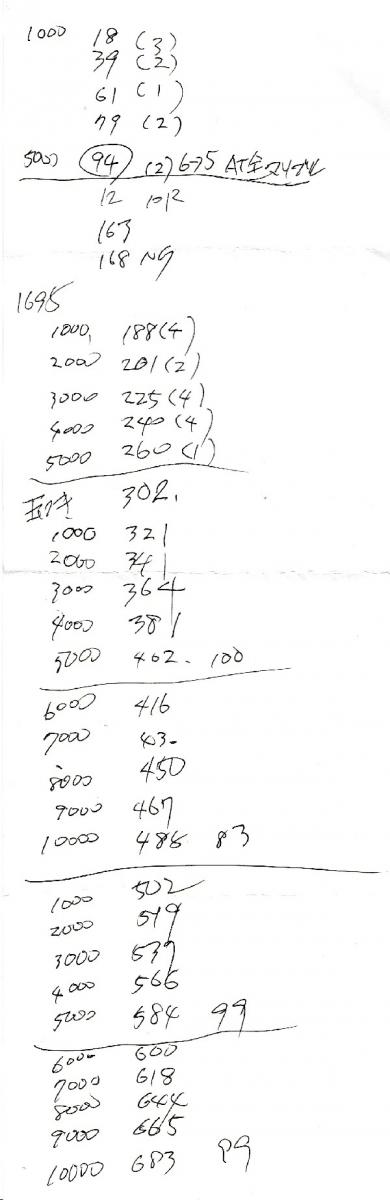 1000 18 (3)
39 (2)
61 (1)
79 (2)
5000 94 (2) 6→5 AT全
12
163
168 NG
1695
1000 188(4)
2000 201(2)
3000 225(4)
4000 240(4)
5000 260(1)
302.
1000 321
2000 341
3000 364
4000 381
5000 402. 100
6000 416
7000 43-
8000 450
9000 467
10000 485 83
1000 502
2000 519
3000 537
4000 566
5000 584 99
6000 600
7000 618
8000 644
9000 665
10000 683 99